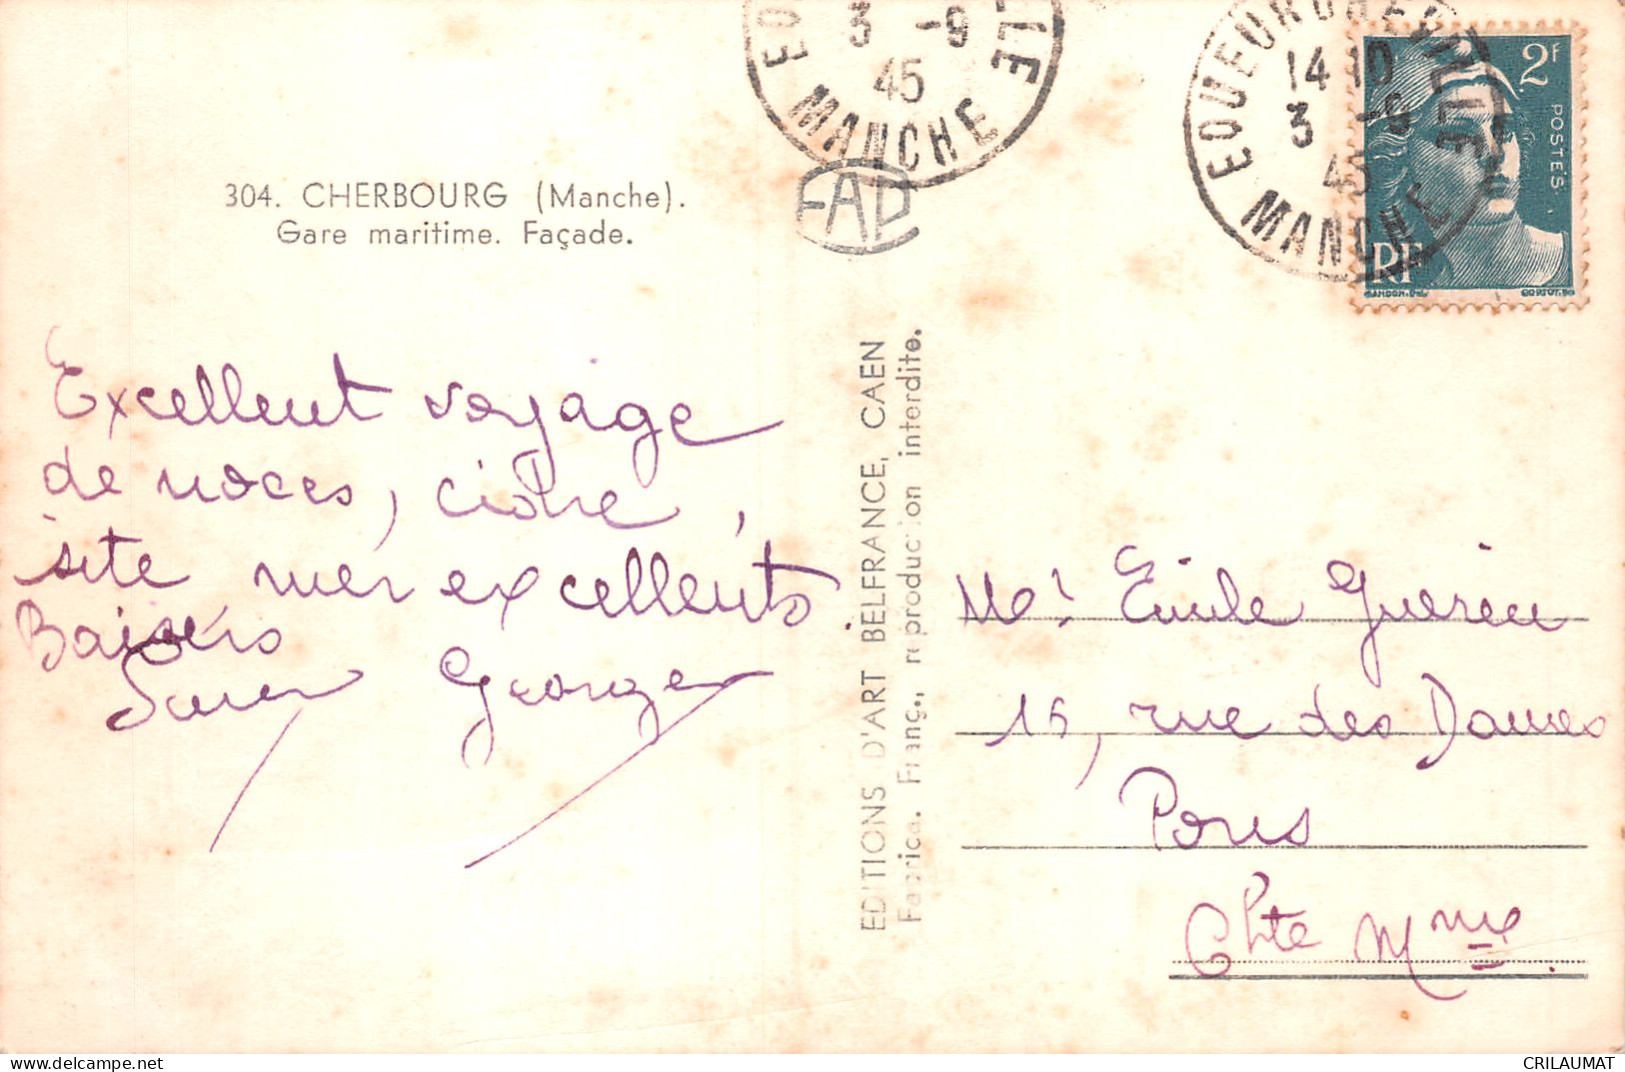 304. CHERBOURG (Manche).
Gare maritime. Façade.
Excellent voyage
de noces, cidre,
site mer excellents.
Baisers
George
EDITIONS D'ART BELFRANCE, CAEN
Fabrica. Franç., reproduction interdite.
3 -9
45
MANCHE
FAD
EQUEURDREVILLE
14 10
3 -9
45
MANCHE
2F
POSTES
RF
GANDON.DEL.
Mr Emile Guerin
15, rue des Dames
Pons
Chte Mme.
www.delcampe.net
CRILAUMAT